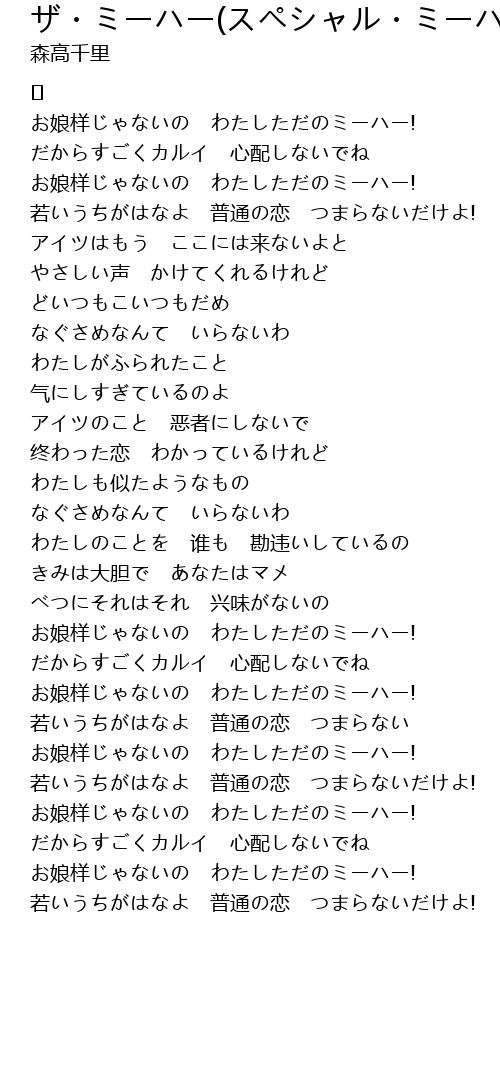 ザ・ミーハー(スペシャル・ミーハ
森高千里
お娘様じゃないの　わたしただのミーハー!
だからすごくカルイ　心配しないでね
お娘様じゃないの　わたしただのミーハー!
若いうちがはなよ　普通の恋　つまらないだけよ!
アイツはもう　ここには来ないよと
やさしい声　かけてくれるけれど
どいつもこいつもだめ
なぐさめなんて　いらないわ
わたしがふられたこと
気にしすぎているのよ
アイツのこと　恶者にしないで
终わった恋　わかっているけれど
わたしも似たようなもの
なぐさめなんて　いらないわ
わたしのことを　谁も　勘违いしているの
きみは大胆で　あなたはマメ
べつにそれはそれ　兴味がないの
お娘様じゃないの　わたしただのミーハー!
だからすごくカルイ　心配しないでね
お娘様じゃないの　わたしただのミーハー!
若いうちがはなよ　普通の恋　つまらない
お娘様じゃないの　わたしただのミーハー!
若いうちがはなよ　普通の恋　つまらないだけよ!
お娘様じゃないの　わたしただのミーハー!
だからすごくカルイ　心配しないでね
お娘様じゃないの　わたしただのミーハー!
若いうちがはなよ　普通の恋　つまらないだけよ!